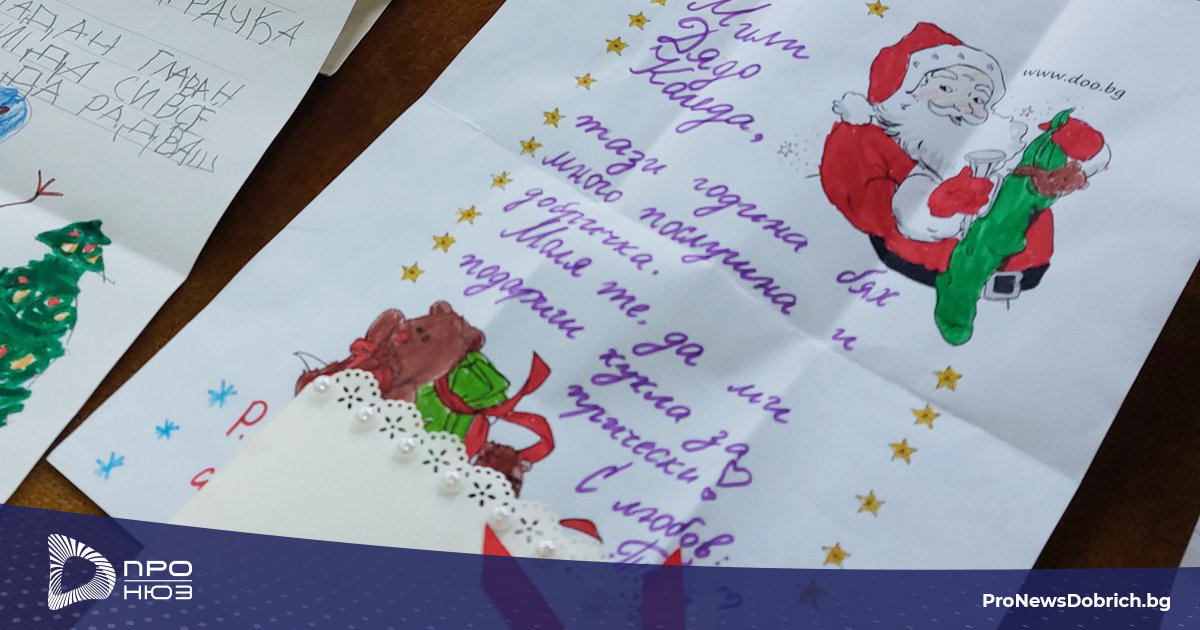 ГРАЧКА
ГЛАВЕН
СИ ВСЕ
ДА РАДВАШ
Мили
Дядо
Коледа,
тази година бях
много послушна и
добричка.
Моля те, да ми
подариш кукла за
прически.
С любов
www.doo.bg
Р.
ПРО
НЮЗ
ProNewsDobrich.bg